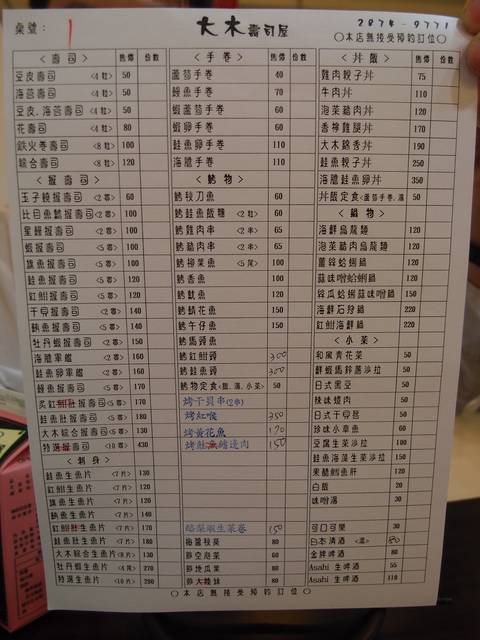 桌號： 1
大木壽司屋
2874-0771
〇本店無接受預約訂位〇
＜壽司＞ 售價 份數
豆皮壽司 <4粒> 50
海苔壽司 <4粒> 50
豆皮．海苔壽司 <4粒> 50
花壽司 <4粒> 80
鉄火卷壽司 <8粒> 100
綜合壽司 <8粒> 120
＜握壽司＞
玉子燒握壽司 <2卷> 60
比目魚鰭握壽司 <2卷> 100
星鰻握壽司 <2卷>
蝦握壽司 <5卷>
旗魚握壽司 <5卷> 120
鮭魚握壽司 <5卷> 120
紅魽握壽司 <5卷> 120
干貝握壽司 <2卷> 140
鮪魚握壽司 <5卷> 150
牡丹蝦握壽司 <2卷> 140
海膽軍艦 <2卷> 160
鮭魚卵軍艦 <2卷> 140
鰻魚握壽司 <5卷> 170
炙紅魽肚握壽司 170
紅魽肚握壽司 170
大木綜合握壽司 <5卷> 170
特選握壽司 <10卷> 430
＜刺身＞
鮭魚生魚片 <7片> 130
紅魽生魚片 <7片> 110
旗魚生魚片 <7片> 120
鮪魚生魚片 <7片>
紅魽肚生魚片 <7片> 170
鮭魚肚生魚片 <7片> 180
大木綜合生魚片 <8片> 130
牡丹蝦生魚片 <4尾> 270
特選生魚片 <10片> 280
＜手卷＞ 售價 份數
蘆筍手卷 40
鰻魚手卷 70
蝦蘆筍手卷 60
蝦卵手卷 60
鮭魚卵手卷 110
海膽手卷 110
＜烤物＞
烤秋刀魚 60
烤鮭魚飯糰 <2粒> 60
烤雞肉串 <2串> 65
烤豬肉串 <2串> 65
烤柳葉魚 <5尾> 100
烤香魚 100
烤魷魚 100
烤鯖花魚 150
烤午仔魚 150
烤馬頭魚
烤紅魽頭 300
烤鮭魚頭 300
烤物定食 <飯．湯．小菜> 50
烤干貝串(2串)
烤紅喉 350
烤黃花魚 170
烤鮭魚鰭邊肉 150
酪梨蝦生菜卷 150
梅醬秋葵 80
炸空菠菜 60
炸地瓜菜 80
炸大陸妹 80
＜丼飯＞ 售價 份數
雞肉親子丼 75
牛肉丼 110
泡菜豬肉丼 120
香檸雞腿丼 170
大木錦香丼 190
鮭魚親子丼 250
海膽鮭魚卵丼 350
丼飯定食 <蘆筍手卷．湯> 50
＜鍋物＞
海鮮烏龍麵 120
泡菜豬肉烏龍麵 120
薑絲蛤蜊鍋 120
蒜味噌蛤蜊鍋 120
絲瓜蛤蜊蒜味噌鍋 150
海鮮石狩鍋 220
紅魽海鮮鍋 220
＜小菜＞
和風青花菜 50
鮮蝦馬鈴薯沙拉 50
日式黑豆 50
辣味燒肉 50
日式干貝唇 50
珍味小章魚 60
豆腐生菜沙拉 100
鮭魚海藻生菜沙拉 100
果醋鱈魚肝 120
白飯 20
味噌湯 30
可口可樂 30
日本清酒 <溫> 80
金牌啤酒 60
Asahi 生啤酒 55
Asahi 生啤酒 110
〇本店無接受預約訂位〇